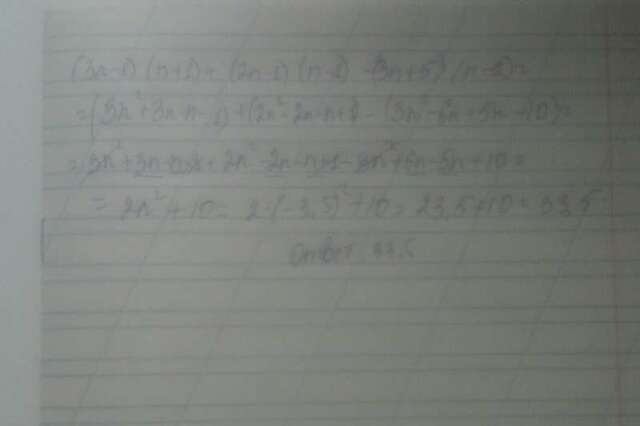 (3n-1)(n+1)+(2n-1)(n-1)-(3n+5)(n-2)=
=(3n²+3n-n-1)+(2n²-2n-n+1)-(3n²-6n+5n-10)=
=3n²+3n-n-1+2n²-2n-n+1-3n²+6n-5n+10=
=2n²+10=2·(-3,5)²+10=23,5+10=33,5
Ответ: 33,5